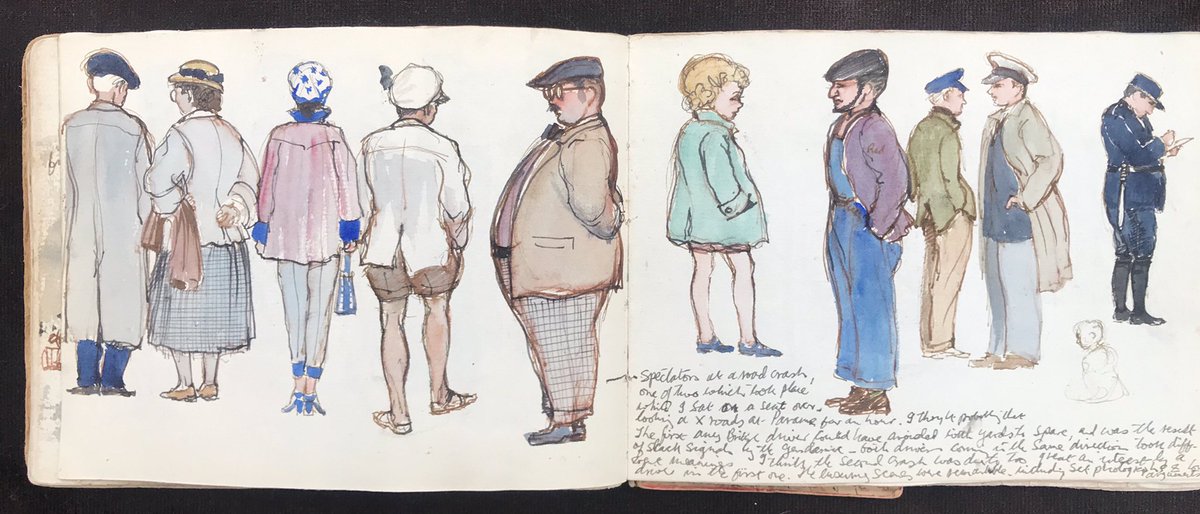 Red
Spectators at a road crash,
one of two which took place
while I sat on a seat over-
looking a X roads at Parame for an hour. I thought probably that
The first any British driver could have avoided with yards to spare, and was the result
of slack signals by the Gendarme - both drivers coming in the same direction took diff-
erent meanings. I think the second crash was due to too great an interest by a
driver in the first one. The ensuing scenes were remarkable, including set photographs &
arguments